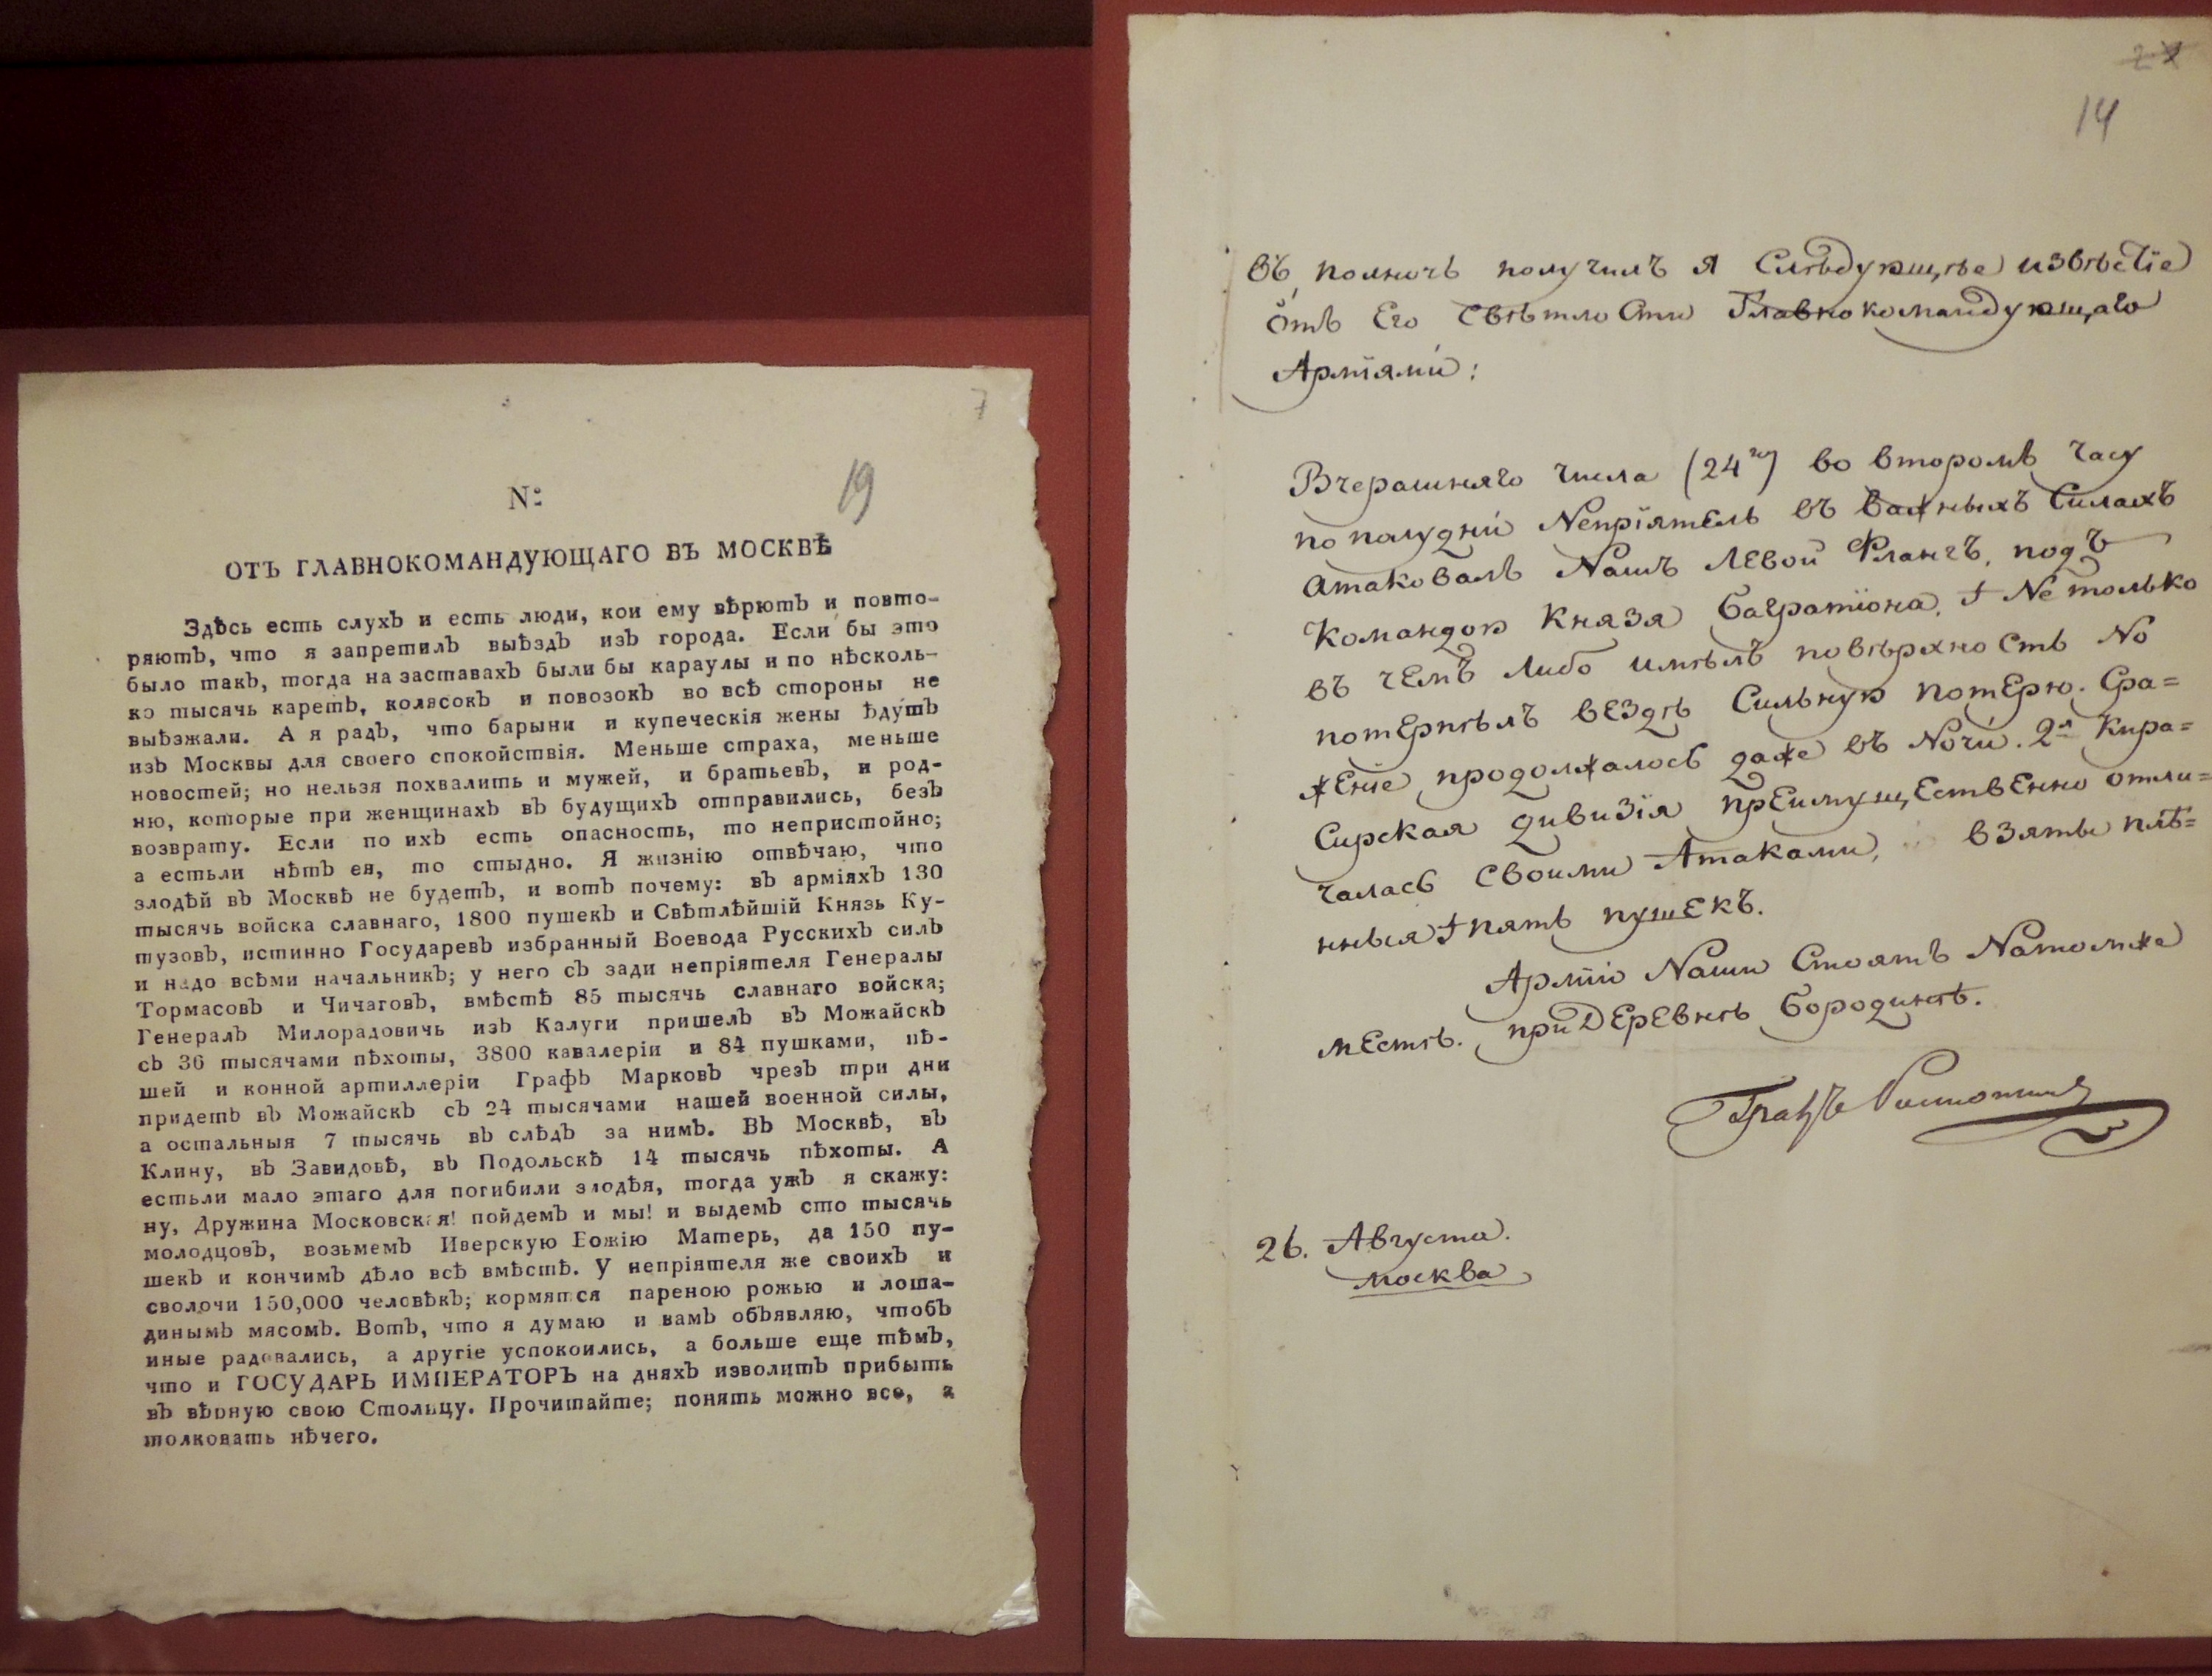 7
19
N:
ОТЪ ГЛАВНОКОМАНДУЮЩАГО ВЪ МОСКВѢ
Здѣсь есть слухъ и есть люди, кои ему вѣрютъ и повто-
ряютъ, что я запретилъ выѣздъ изъ города. Если бы это
было такъ, тогда на заставахъ были бы караулы и по нѣсколь-
ко тысячь каретъ, колясокъ и повозокъ во всѣ стороны не
выѣзжали. А я радъ, что барыни и купеческія жены ѣдутъ
изъ Москвы для своего спокойствія. Меньше страха, меньше
новостей; но нельзя похвалить и мужей, и братьевъ, и род-
ню, которые при женщинахъ въ будущихъ отправились, безъ
возврату. Если по ихъ есть опасность, то непристойно;
а естьли нѣтъ ея, то стыдно. Я жизнію отвѣчаю, что
злодѣй въ Москвѣ не будетъ, и вотъ почему: въ арміяхъ 130
тысячь войска славнаго, 1800 пушекъ и Свѣтлѣйшій Князь Ку-
тузовъ, истинно Государевъ избранный Воевода Русскихъ силъ
и надо всѣми начальникъ; у него съ зади непріятеля Генералы
Тормасовъ и Чичаговъ, вмѣстѣ 85 тысячь славнаго войска;
Генералъ Милорадовичь изъ Калуги пришелъ въ Можайскъ
съ 36 тысячами пѣхоты, 3800 кавалеріи и 84 пушками, пѣ-
шей и конной артиллеріи Графъ Марковъ чрезъ три дни
придетъ въ Можайскъ съ 24 тысячами нашей военной силы,
а остальныя 7 тысячь въ слѣдъ за нимъ. Въ Москвѣ, въ
Клину, въ Завидовѣ, въ Подольскѣ 14 тысячь пѣхоты. А
естьли мало этаго для погибили злодѣя, тогда ужъ я скажу:
ну, Дружина Московская! пойдемъ и мы! и выдемъ сто тысячь
молодцовъ, возьмемъ Иверскую Божію Матерь, да 150 пу-
шекъ и кончимъ дѣло всѣ вмѣстѣ. У непріятеля же своихъ и
сволочи 150,000 человѣкъ; кормятся пареною рожью и лоша-
динымъ мясомъ. Вотъ, что я думаю и вамъ объявляю, чтобъ
иные радовались, а другіе успокоились, а больше еще тѣмъ,
что и ГОСУДАРЬ ИМПЕРАТОРЪ на дняхъ изволитъ прибыть
въ вѣрную свою Столицу. Прочитайте; понять можно все, а
толковать нѣчего.
14
Въ полночь получилъ я Слѣдующѣе извѣстїе
отъ Его Свѣтлости Главнокомандующаго
Армїями:
Вчерашняго числа (24го) во второмъ часу
по полудни Непрїятель въ важныхъ Силахъ
атаковалъ Нашъ Левой Флангъ, подъ
Командою Князя Багратїона, и Не только
въ чемъ либо имѣлъ повѣрхность Но
потерпѣлъ вездѣ Сильную потерю. Сра=
женїе продолжалось даже въ Ночи. 2я Кира=
Сирская дивизїя преимущественно отли=
чалась своими Атаками, взяты плѣ=
нныя и пять пушекъ.
Армїи Наши Стоятъ Натомже
местѣ. при Деревнѣ Бородинѣ.
Графъ Растопчинъ
26. Августа.
Москва